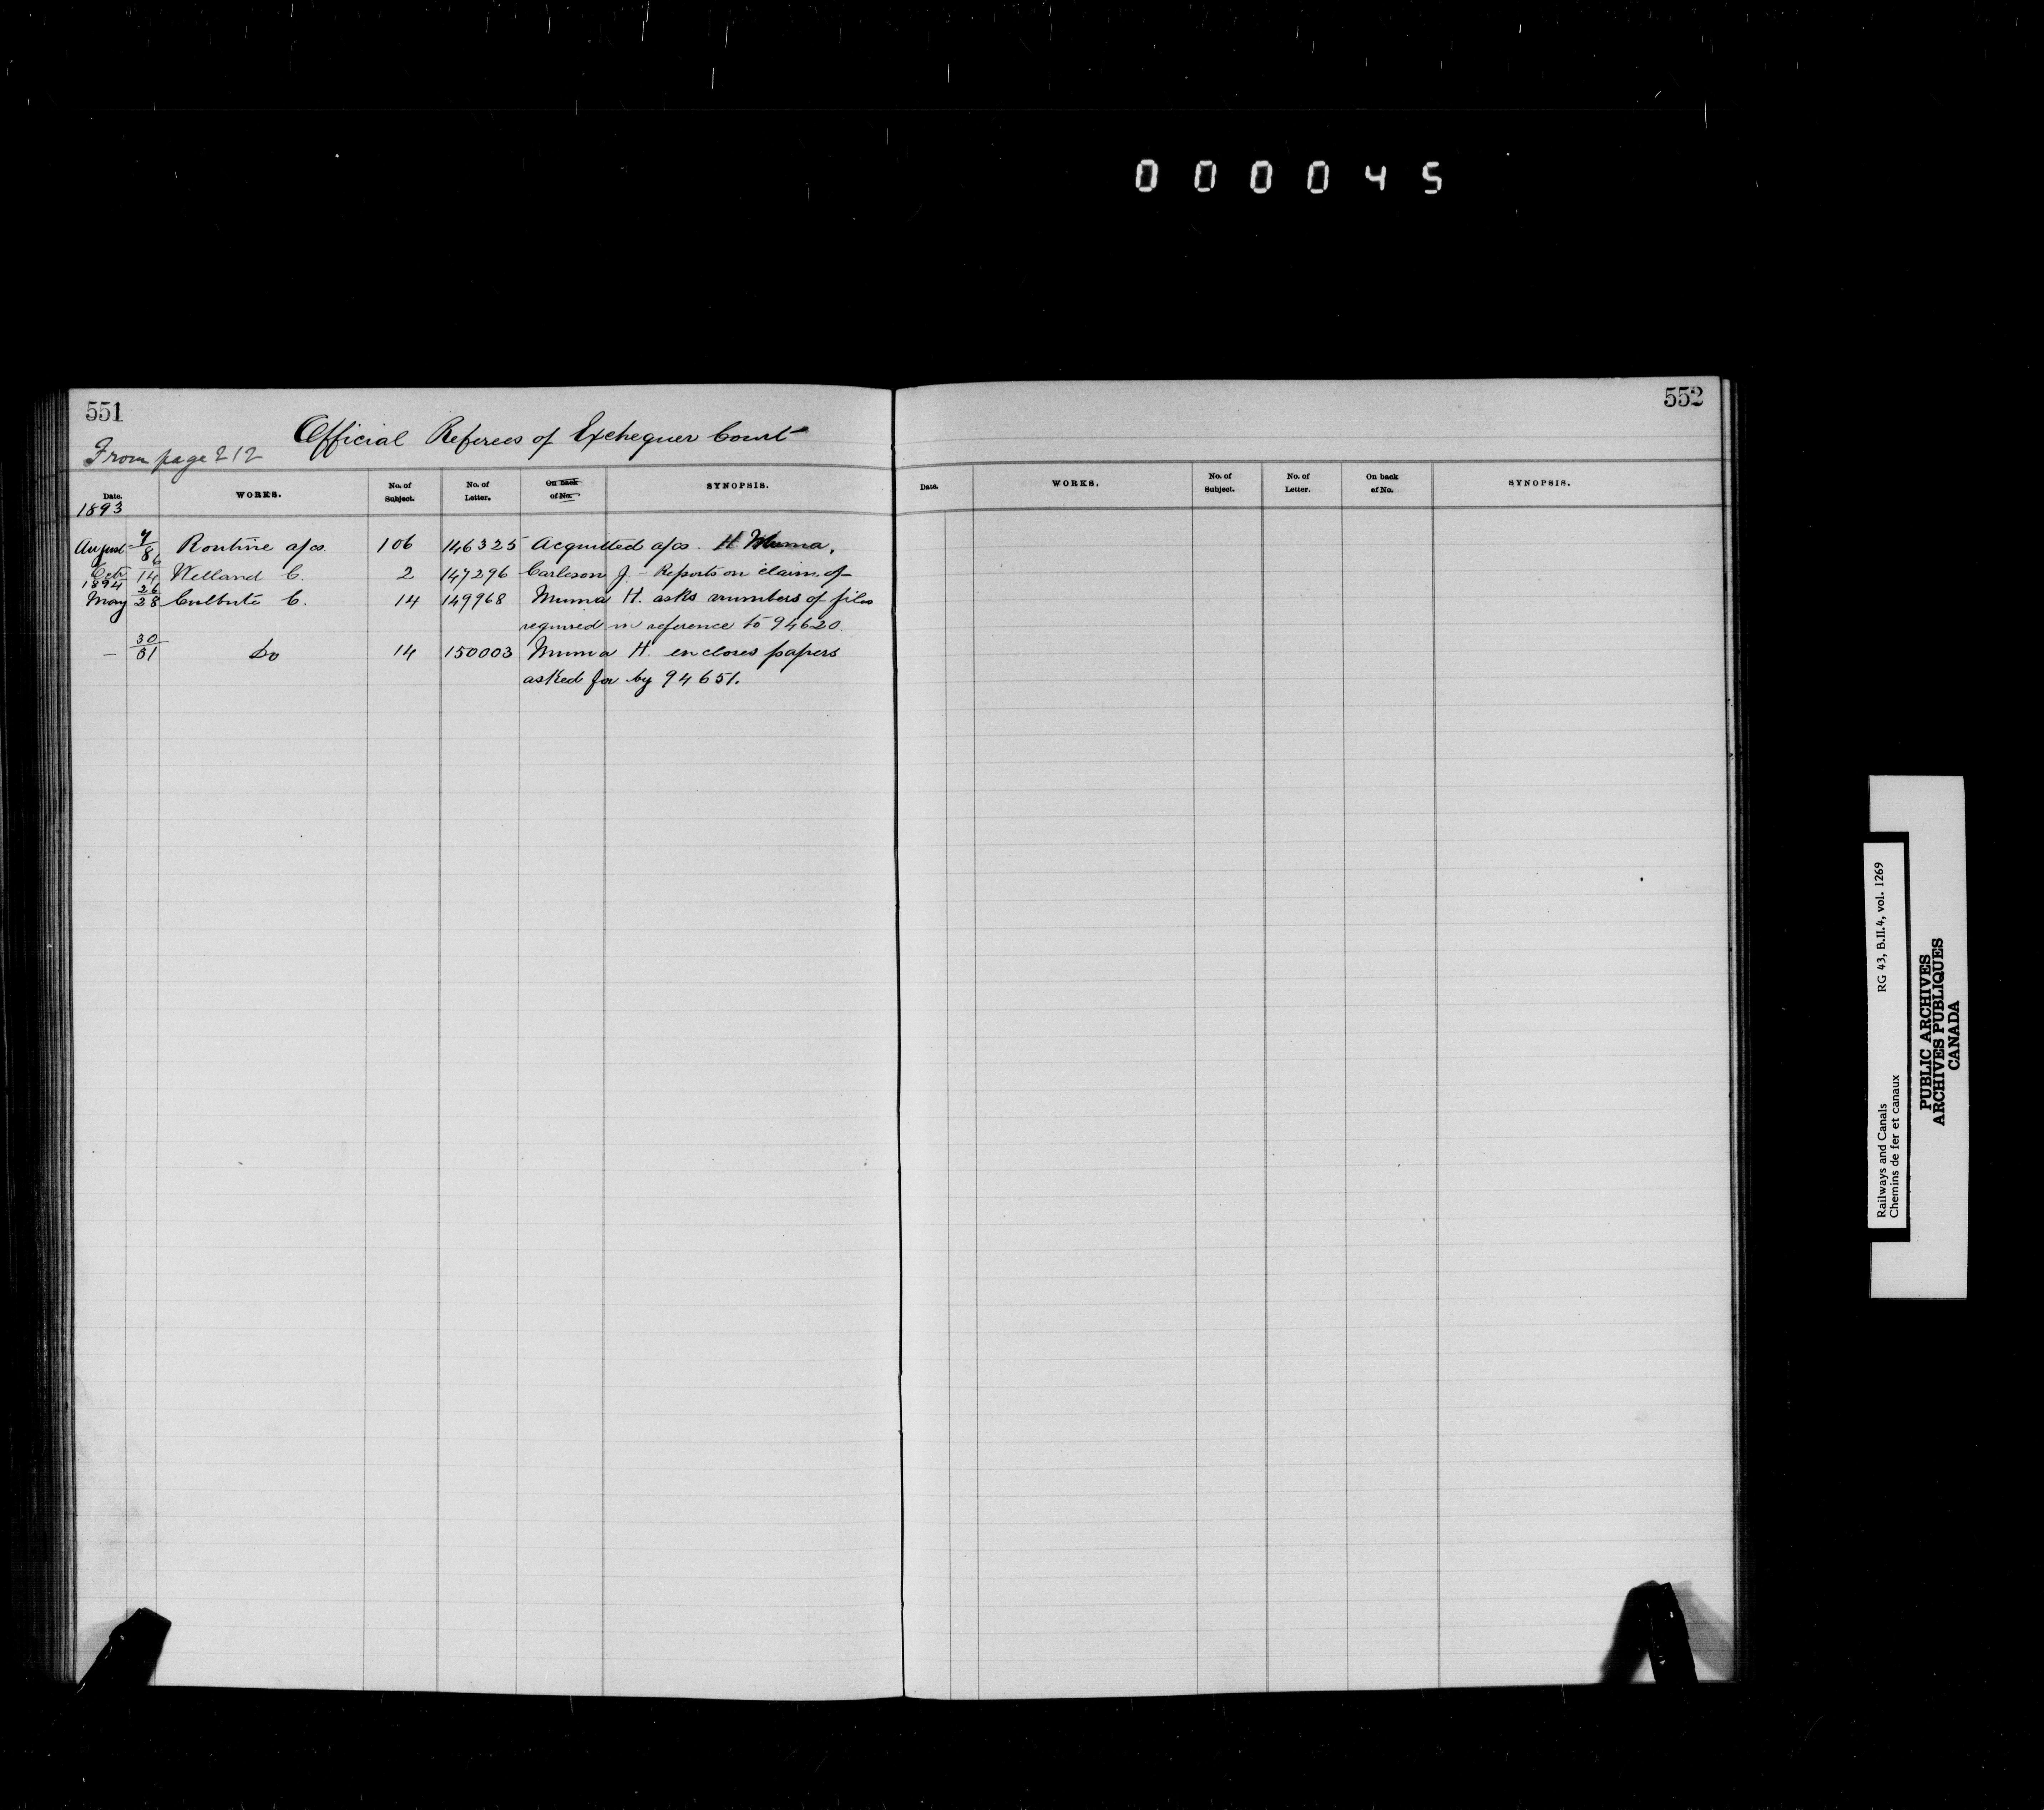 000045
551
Official Referees of Exchequer Court
From page 212
Date. WORKS. No. of Subject. No. of Letter. On back of No. SYNOPSIS.
1893
August 7/8 Routine a/cs. 106 146325 Acquitted a/cs. H. Muma.
Octr 6/14 Welland C. 2 147296 Carleson J. - Reports on claim of
1894
May 26/28 Culbute C. 14 149968 Muma H. asks numbers of files
required in reference to 94620.
— 30/31 Do 14 150003 Muma H. encloses papers
asked for by 94651.
552
Date. WORKS. No. of Subject. No. of Letter. On back of No. SYNOPSIS.
Railways and Canals RG 43, B.II.4, vol. 1269
Chemins de fer et canaux
PUBLIC ARCHIVES
ARCHIVES PUBLIQUES
CANADA